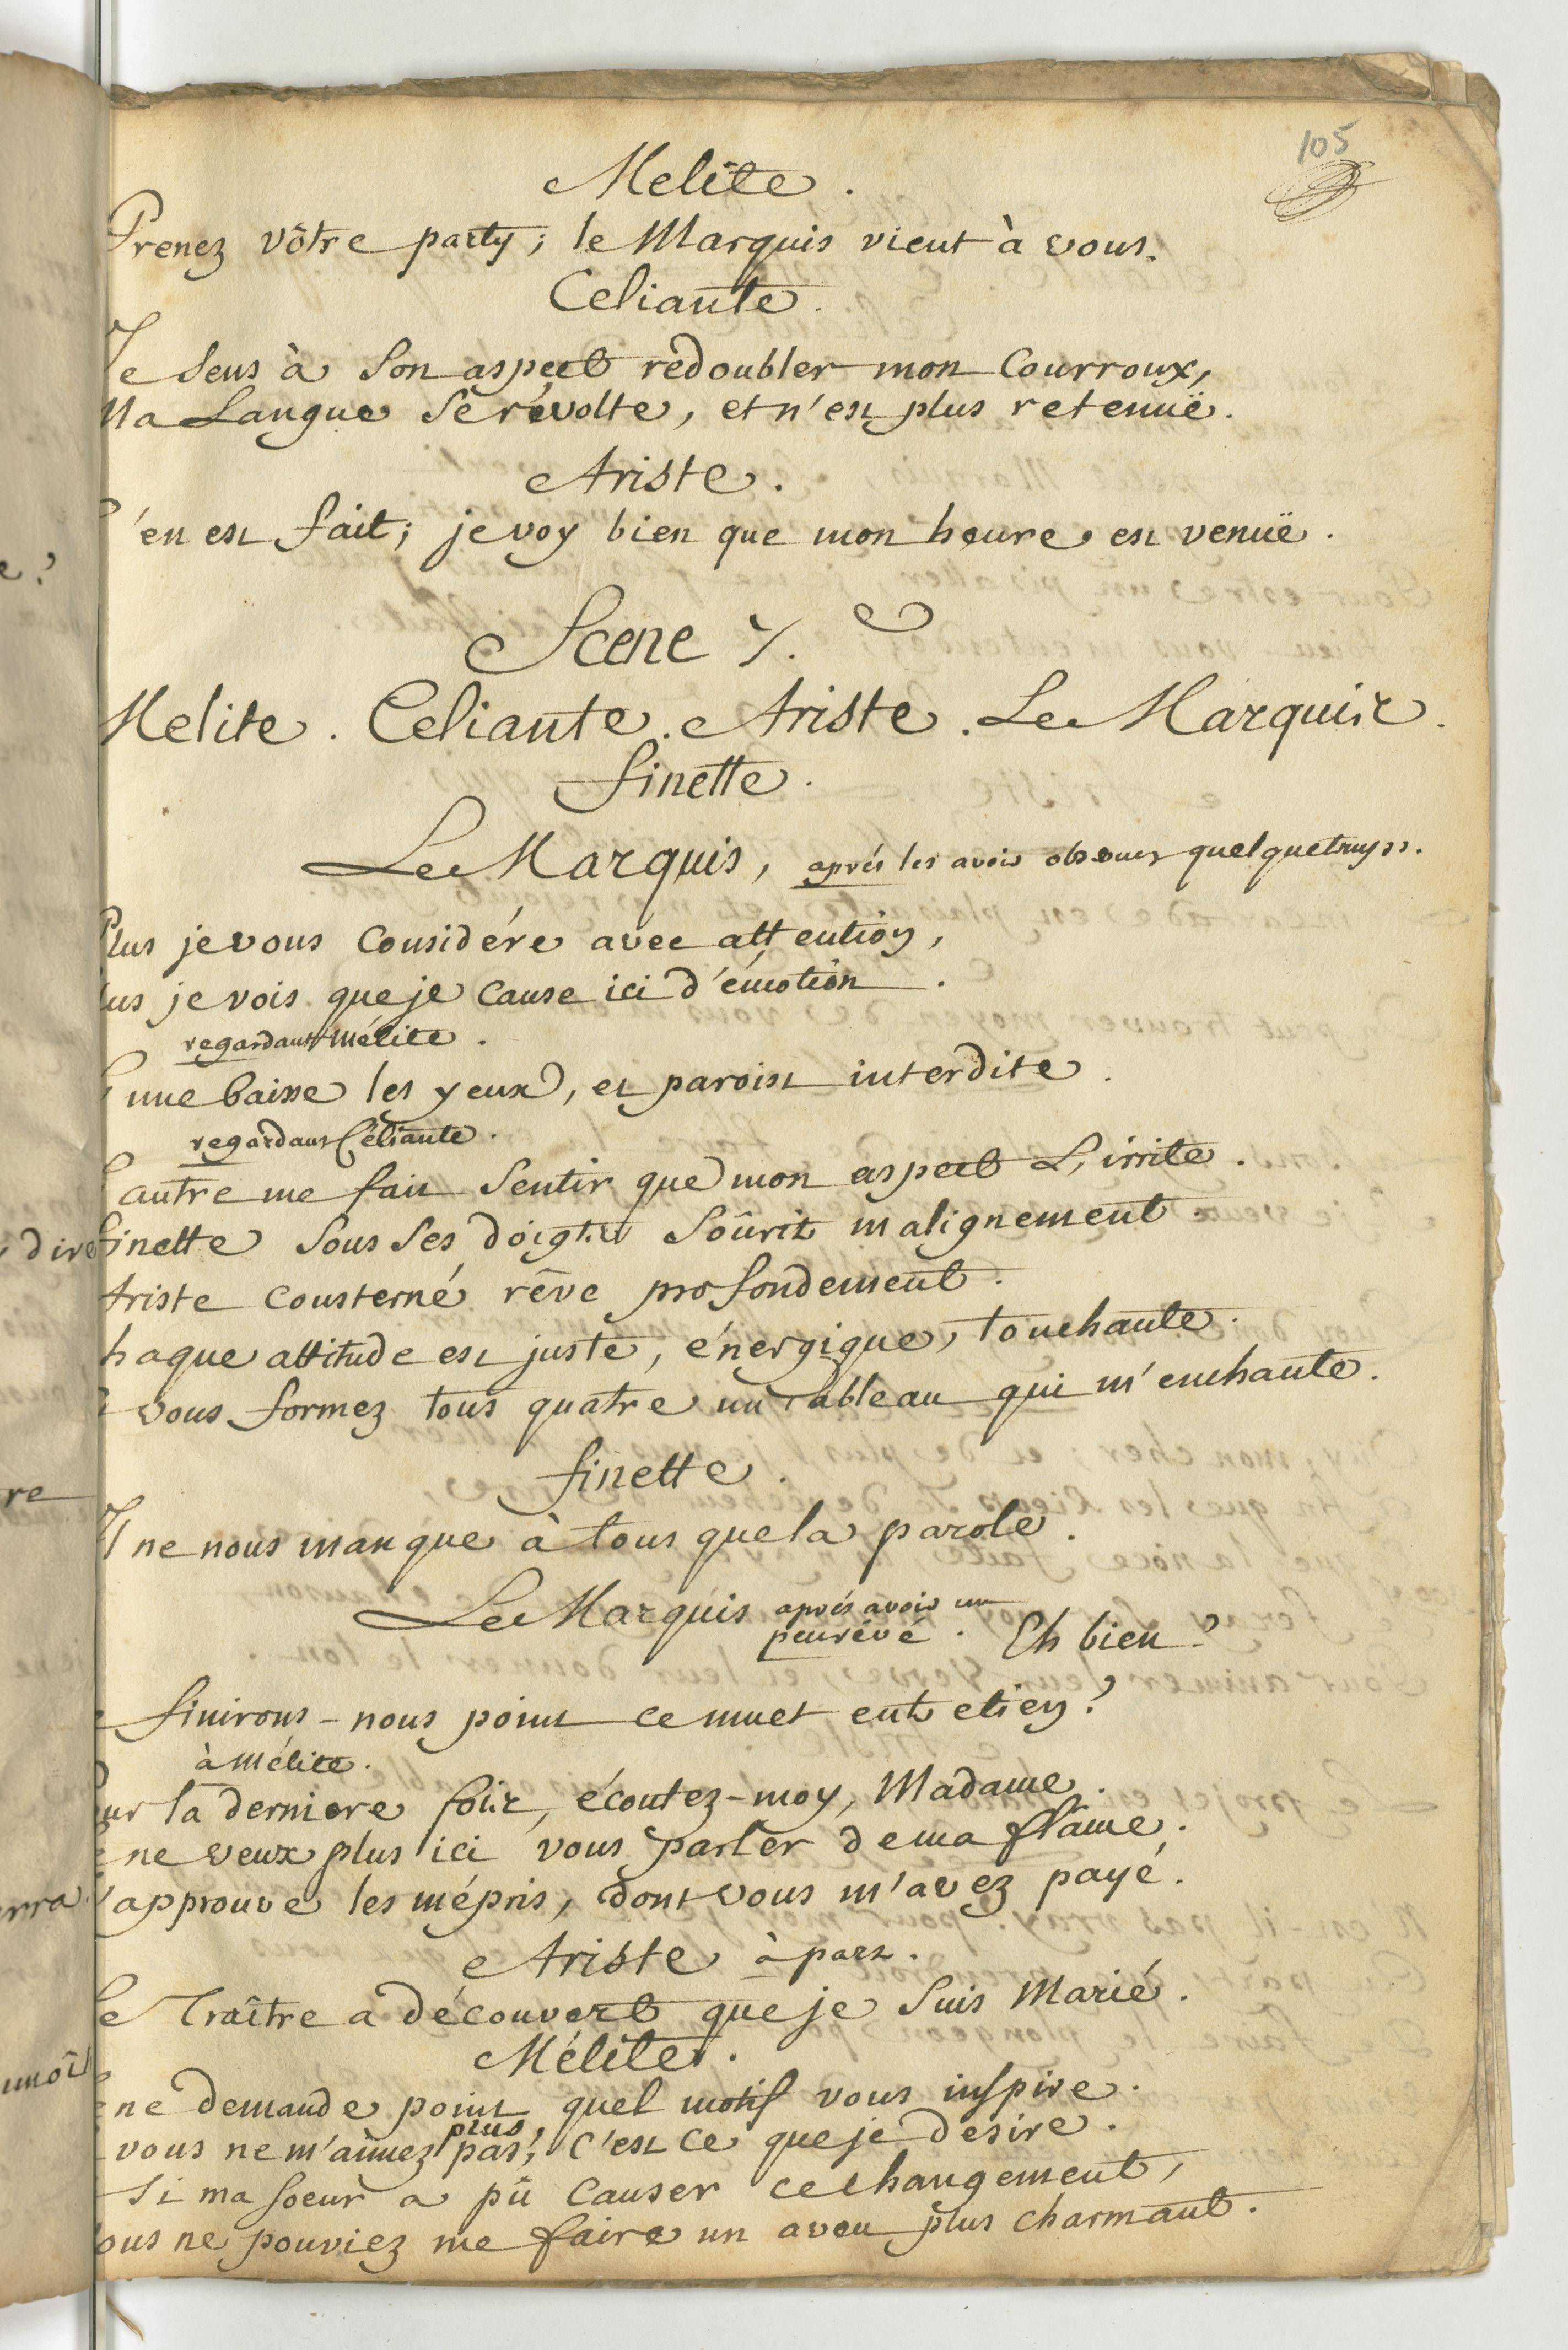 105
Melite.
Prenez vôtre party; le Marquis vient à vous.
Celiante.
Je sens à son aspect redoubler mon Courroux,
Ma Langue se révolte, et n'est plus retenuë.
Ariste.
C'en est fait; je voy bien que mon heure est venuë.
Scene 7.e
Melite. Celiante. Ariste. Le Marquis.
finette.
Le Marquis, aprés les avoir observez quelque temps.
Plus je vous Considére avec attention,
lus je vois que je Cause ici d'émotion.
regardant Mélite.
L'une baisse les yeux, et paroist interdite.
regardant Céliante.
L'autre me fait sentir que mon aspect L'irrite.
finette sous ses doigts soûrit malignement.
Ariste Consterné rêve profondement.
haque attitude est juste, énergique, touchante.
vous formez tous quatre un Tableau qui m'enchante.
finette.
Il ne nous manque à tous que la parole.
Le Marquis aprés avoir un
peu révé. Eh bien?
finirons-nous point ce muet entretien?
à Mélite.
our la derniere fois, écoutez-moy, Madame.
ne veux plus ici vous parler de ma flame.
J'approuve les mépris, dont vous m'avez payé.
Ariste à part.
Le Traître a découvert que je suis Marié.
Mélite.
ne demande point quel motif vous inspire.
plus,
vous ne m'aimez pas; c'est ce que je desire.
Si ma soeur a pû Causer ce changement,
ous ne pouviez me faire un aveu plus charmant.